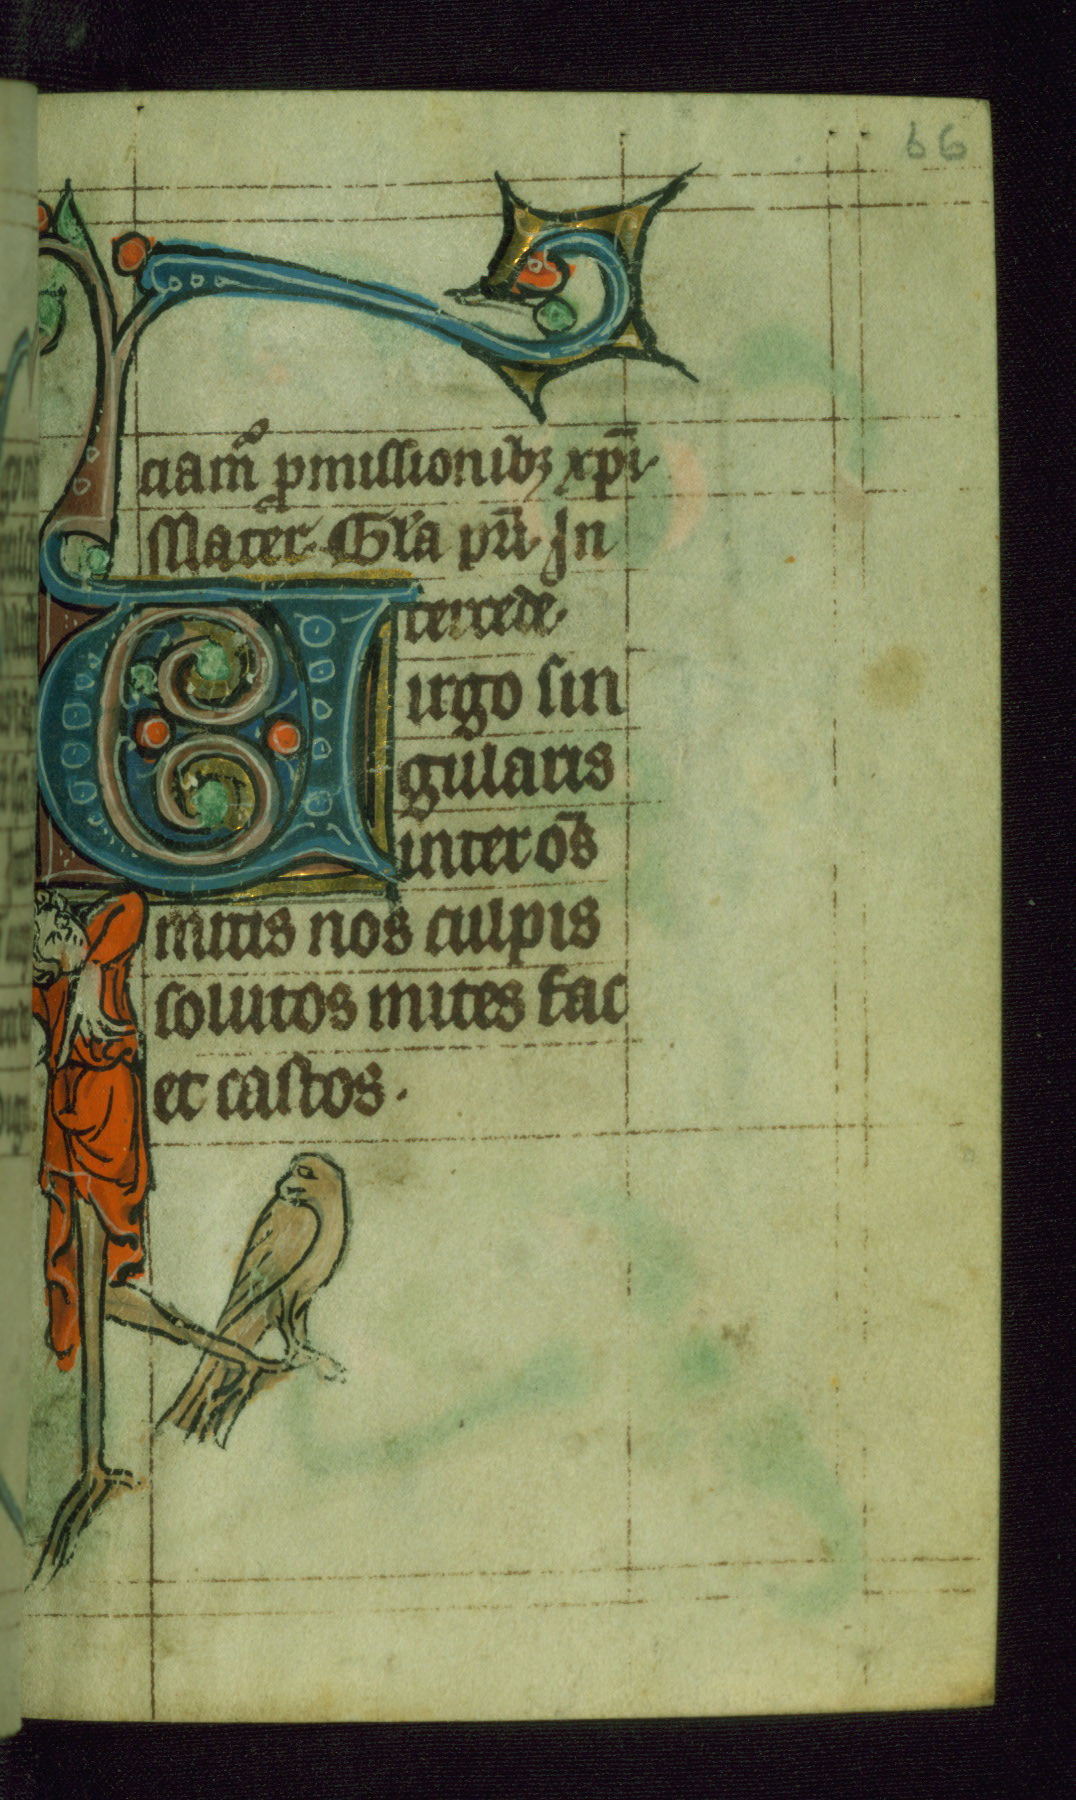 66
ciam᷑ ꝑmissionibꝫ xp̄i.
Mater. Gl̄a pr̄i. In
tercede.
irgo sin
gularis
inter om̄s
mitis nos culpis
solutos mites fac
et castos.